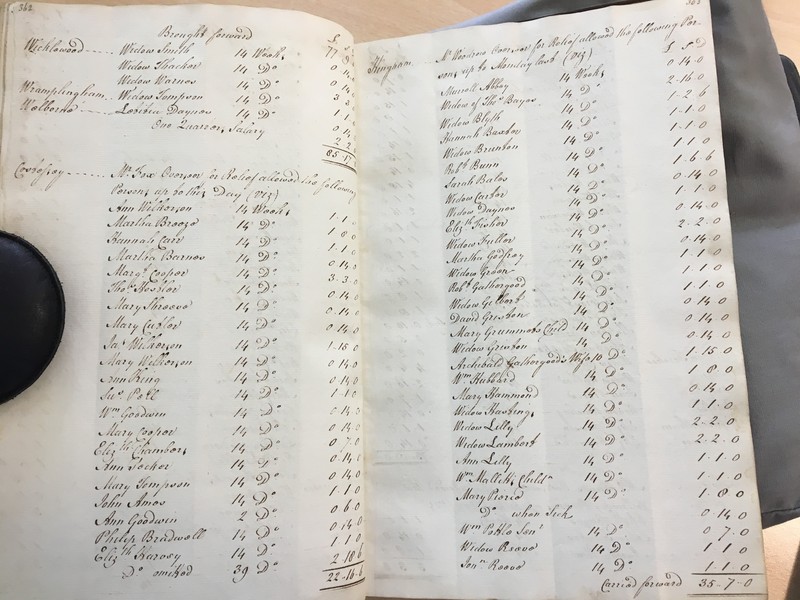 362
Brought forward £ S D
Wicklewood Widow Smith 14 Weeks 77 9
Widow Thacker 14 Do 0 14
Widow Warnes 14 Do 0 14
Wramplingham Widow Tompson 14 Do 3 3
Welborne Lœtitia Daynes 14 Do 1 1
One Quarters Salary
2 2
85 17
Costessey Mr Fox Overseer for Relief allowed the following
Persons up to this Day (viz)
Ann Wilkerson 14 Weeks 1 1
Martha Breeze 14 Do 1 8 0
Hannah Carr 14 Do 1 1 0
Martha Barnes 14 Do 0 14 0
Margt Cooper 14 Do 3 3 0
Thos Hostler 14 Do 0 14 0
Mary Shreeve 14 Do 0 14 0
Mary Cutler 14 Do 0 14 0
Jas Wilkerson 14 Do 1 15 0
Mary Wilkerson 14 Do 0 14 0
Ann King 14 Do 0 14 0
14 Do 1 1 0
Wm Goodwin 14 Do 0 14
Mary Cooper 14 Do 0 14 0
Elizth Chambers 14 Do 0 7 0
Ann 14 Do 0 14
Mary Tompson 14 Do 0 14 0
John Amos 14 Do 1 1 0
Ann Goodwin 2 Do 0 6 0
Philip Bradwell 14 Do 0 14 0
Elizth Harvey 14 Do 1 1 0
Do omitted 39 Do 2 18 6
22 16 6
363
Hingham Mr Woodrow Overseer for Relief allowed the following Per-
sons up to Monday last (viz) £ S D
Murrell Abbey 14 Weeks 0 14 0
Widow of Thos Bayes 14 Do 2 16 0
Widow Blyth 14 Do 1 2 6
Hannah Baxter 14 Do 1 1 0
Widow Brunton 14 Do 1 1 0
Robt Bunn 14 Do 1 1 0
Sarah Bales 14 Do 1 6 6
Widow Carter 14 Do 0 14 0
Widow Daynes 14 Do 1 1 0
Elizth Fisher 14 Do 0 14 0
Widow Fuller 14 Do 2 2 0
Martha Godfrey 14 Do 0 14 0
Widow Green 14 Do 1 1 0
Robt Gathergood 14 Do 1 1 0
Widow Gilbert 14 Do 1 1 0
David Grixton 14 Do 0 14 0
Mary Grummets Child 14 Do 0 14 0
Widow Grixton 14 Do 0 14 0
Archibald Gathergoods Wife 10 Do 1 15 0
Wm Hubbard 14 Do 1 8 0
Mary Hammond 14 Do 0 14 0
Widow Hastings 14 Do 1 1 0
Widow Lilly 14 Do 2 2 0
Widow Lambert 14 Do 2 2 0
Ann Lilly 14 Do 1 1 0
Wm Malletts Childn 14 Do 1 1 0
Mary Peirce 14 Do 1 8 0
Do when Sick 0 14 0
Wm Pattle Senr 14 Do 0 7 0
Widow Reeve 14 Do 1 1 0
Reeve 14 Do 1 1 0
Carried forward 35 7 0